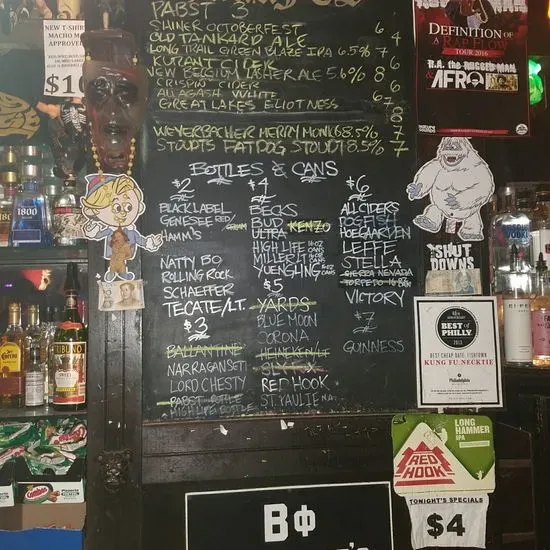 PABST 3
SHINER OCTOBERFEST 6
OLD TANKARD ALE 4
LONG TRAIL GREEN BLAZE IPA 6.5% 7
KUTANT CIDER 6
NEW BELGIUM DASHER ALE 5.6% 6
CRISPIN CIDER 6
ALLAGASH WHITE 7
GREAT LAKES ELIOT NESS 8
WEYERBACHER MERRY MONK 8.5% 7
STOUDTS FAT DOG STOUT 8.5% 7
BOTTLES & CANS
$2
BLACK LABEL
GENESEE RED/CREAM
HAMM'S
NATTY BO
ROLLING ROCK
SCHAEFFER
TECATE/LT.
$3
BALLANTINE
NARRAGANSETT
LORD CHESTY
PABST BOTTLE
HIGH LIFE BOTTLE
$4
BECKS
BUD KENZO
ULTRA
HIGH LIFE 16 OZ CANS
MILLER LT 16 OZ CANS
YUENGLING CANS
$5
YARDS
BLUE MOON
CORONA
HEINEKEN/LT
SLY FOX
RED HOOK
ST. PAULIE N.A.
$6
ALL CIDERS
DOGFISH
HOEGAARDEN
LEFFE
STELLA
SIERRA NEVADA
TORPEDO 16 OZ CAN
VICTORY
$7
GUINNESS
NEW T-SHIRT
MACHO M
APPROVED
$10
DEFINITION OF
A RAP FLOW
TOUR 2016
R.A. the RUGGED MAN
& AFRO
SHUT
DOWNS
BEST OF
PHILLY
2013
BEST CHEAP DATE, FISHTOWN
KUNG FU NECKTIE
Philadelphia
LONG
HAMMER
IPA
RED
HOOK
TONIGHT'S SPECIALS
$4
1800
1800
ABSOLUT
Combos
BФ